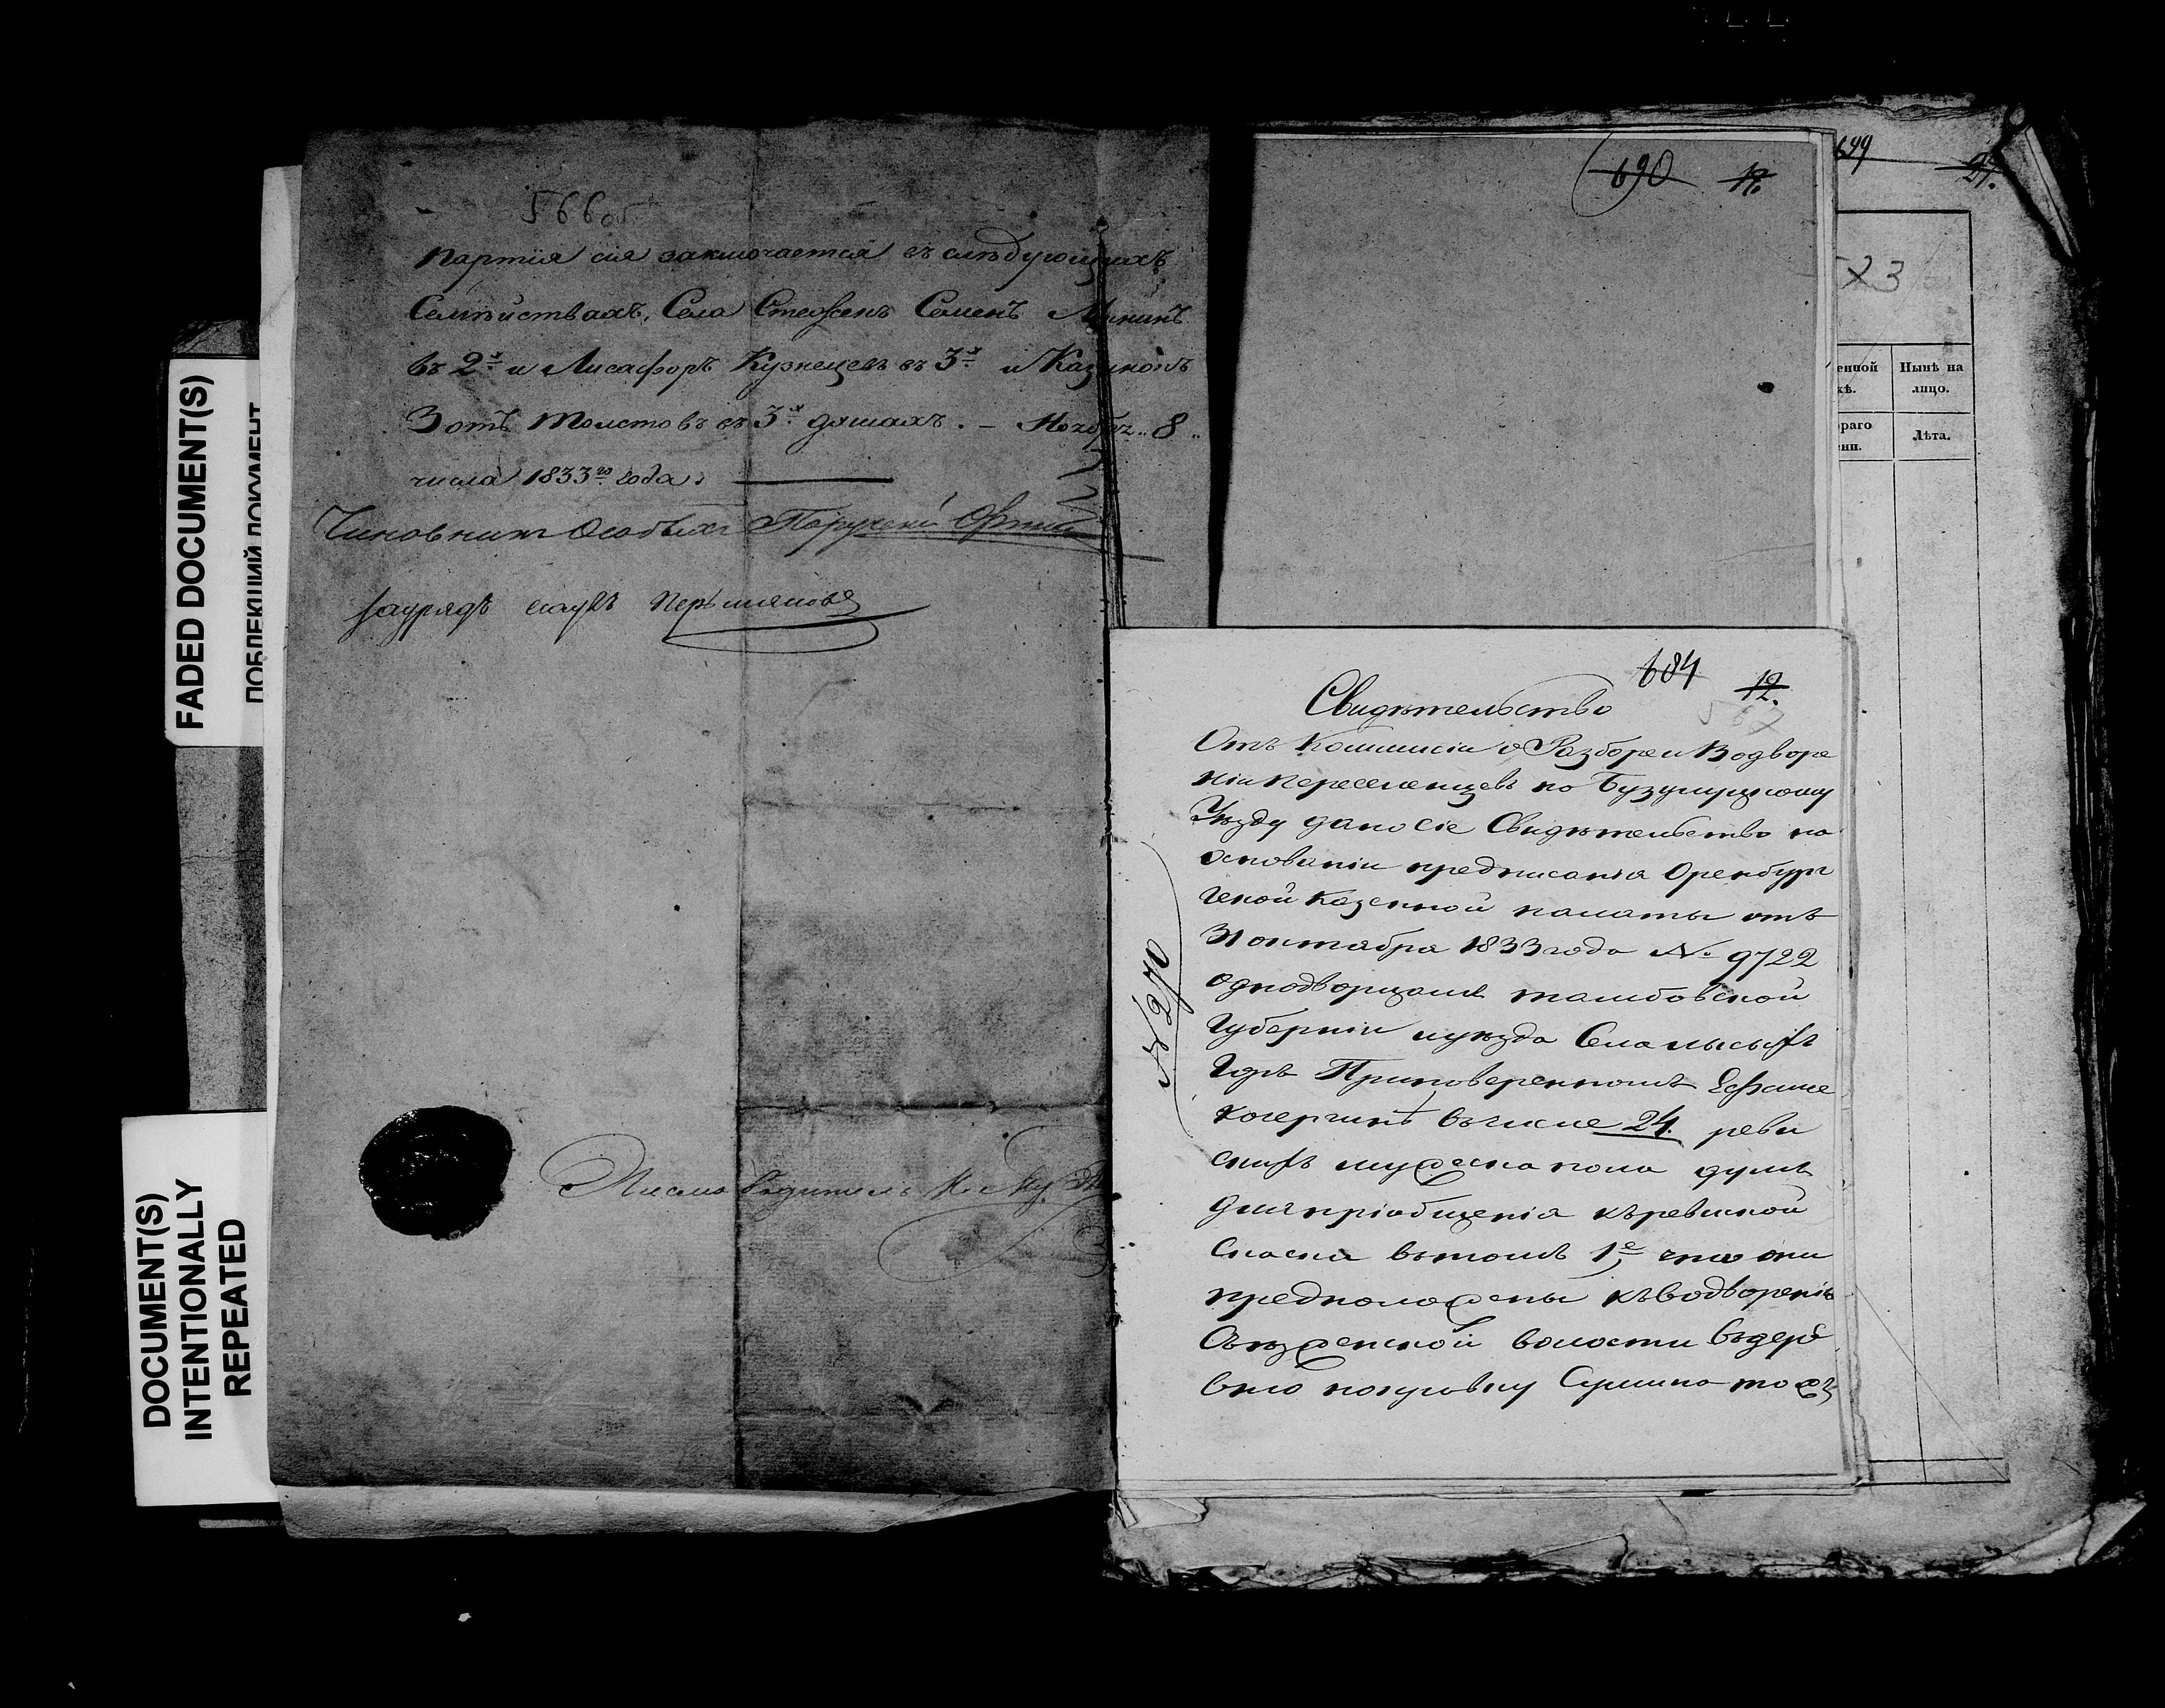 566об.
партия сия заключается въ слѣдующихъ
Семѣйствахъ, Села Стежекъ Семенъ
въ 2х и Лисафоръ Кузнецовъ въ 3х и
Зотъ Толстовъ въ 3х душахъ. – Ноября „8„
числа 1833го года.
Чиновникъ Особыхъ Порученій
Заурядъ есаулъ
Письмоводитель
FADED DOCUMENT(S)
ПОБЛЕКШИЙ ДОКУМЕНТ
DOCUMENT(S)
INTENTIONALLY
REPEATED
690 17.
699 21.
523
енной Нынѣ на
кѣ. лицо.
ораго Лѣта.
ни.
684 12.
567
Свидѣтельство
Отъ Коммисіи о Разборе и Водворе
ніи переселенцевъ по Бузулуцкому
Уѣзду дано сіе Свидѣтельство на
основаніи предписанія Оренбург
ской казенной палаты отъ
31 октября 1833 года № 9722
однодворцамъ тамбовской
губерніи и уѣзда Села лысыхъ
горъ Приповеренномъ Ефиме
кочергинѣ въ числе 24. реви
скихъ мужеска пола душъ
для пріобщенія къ ревиской
Сказки въ томъ 1е, что они
предположены къ водворенію
Съезженской волости въ дерѣ
вню покровку Сушино тожъ
№ 270